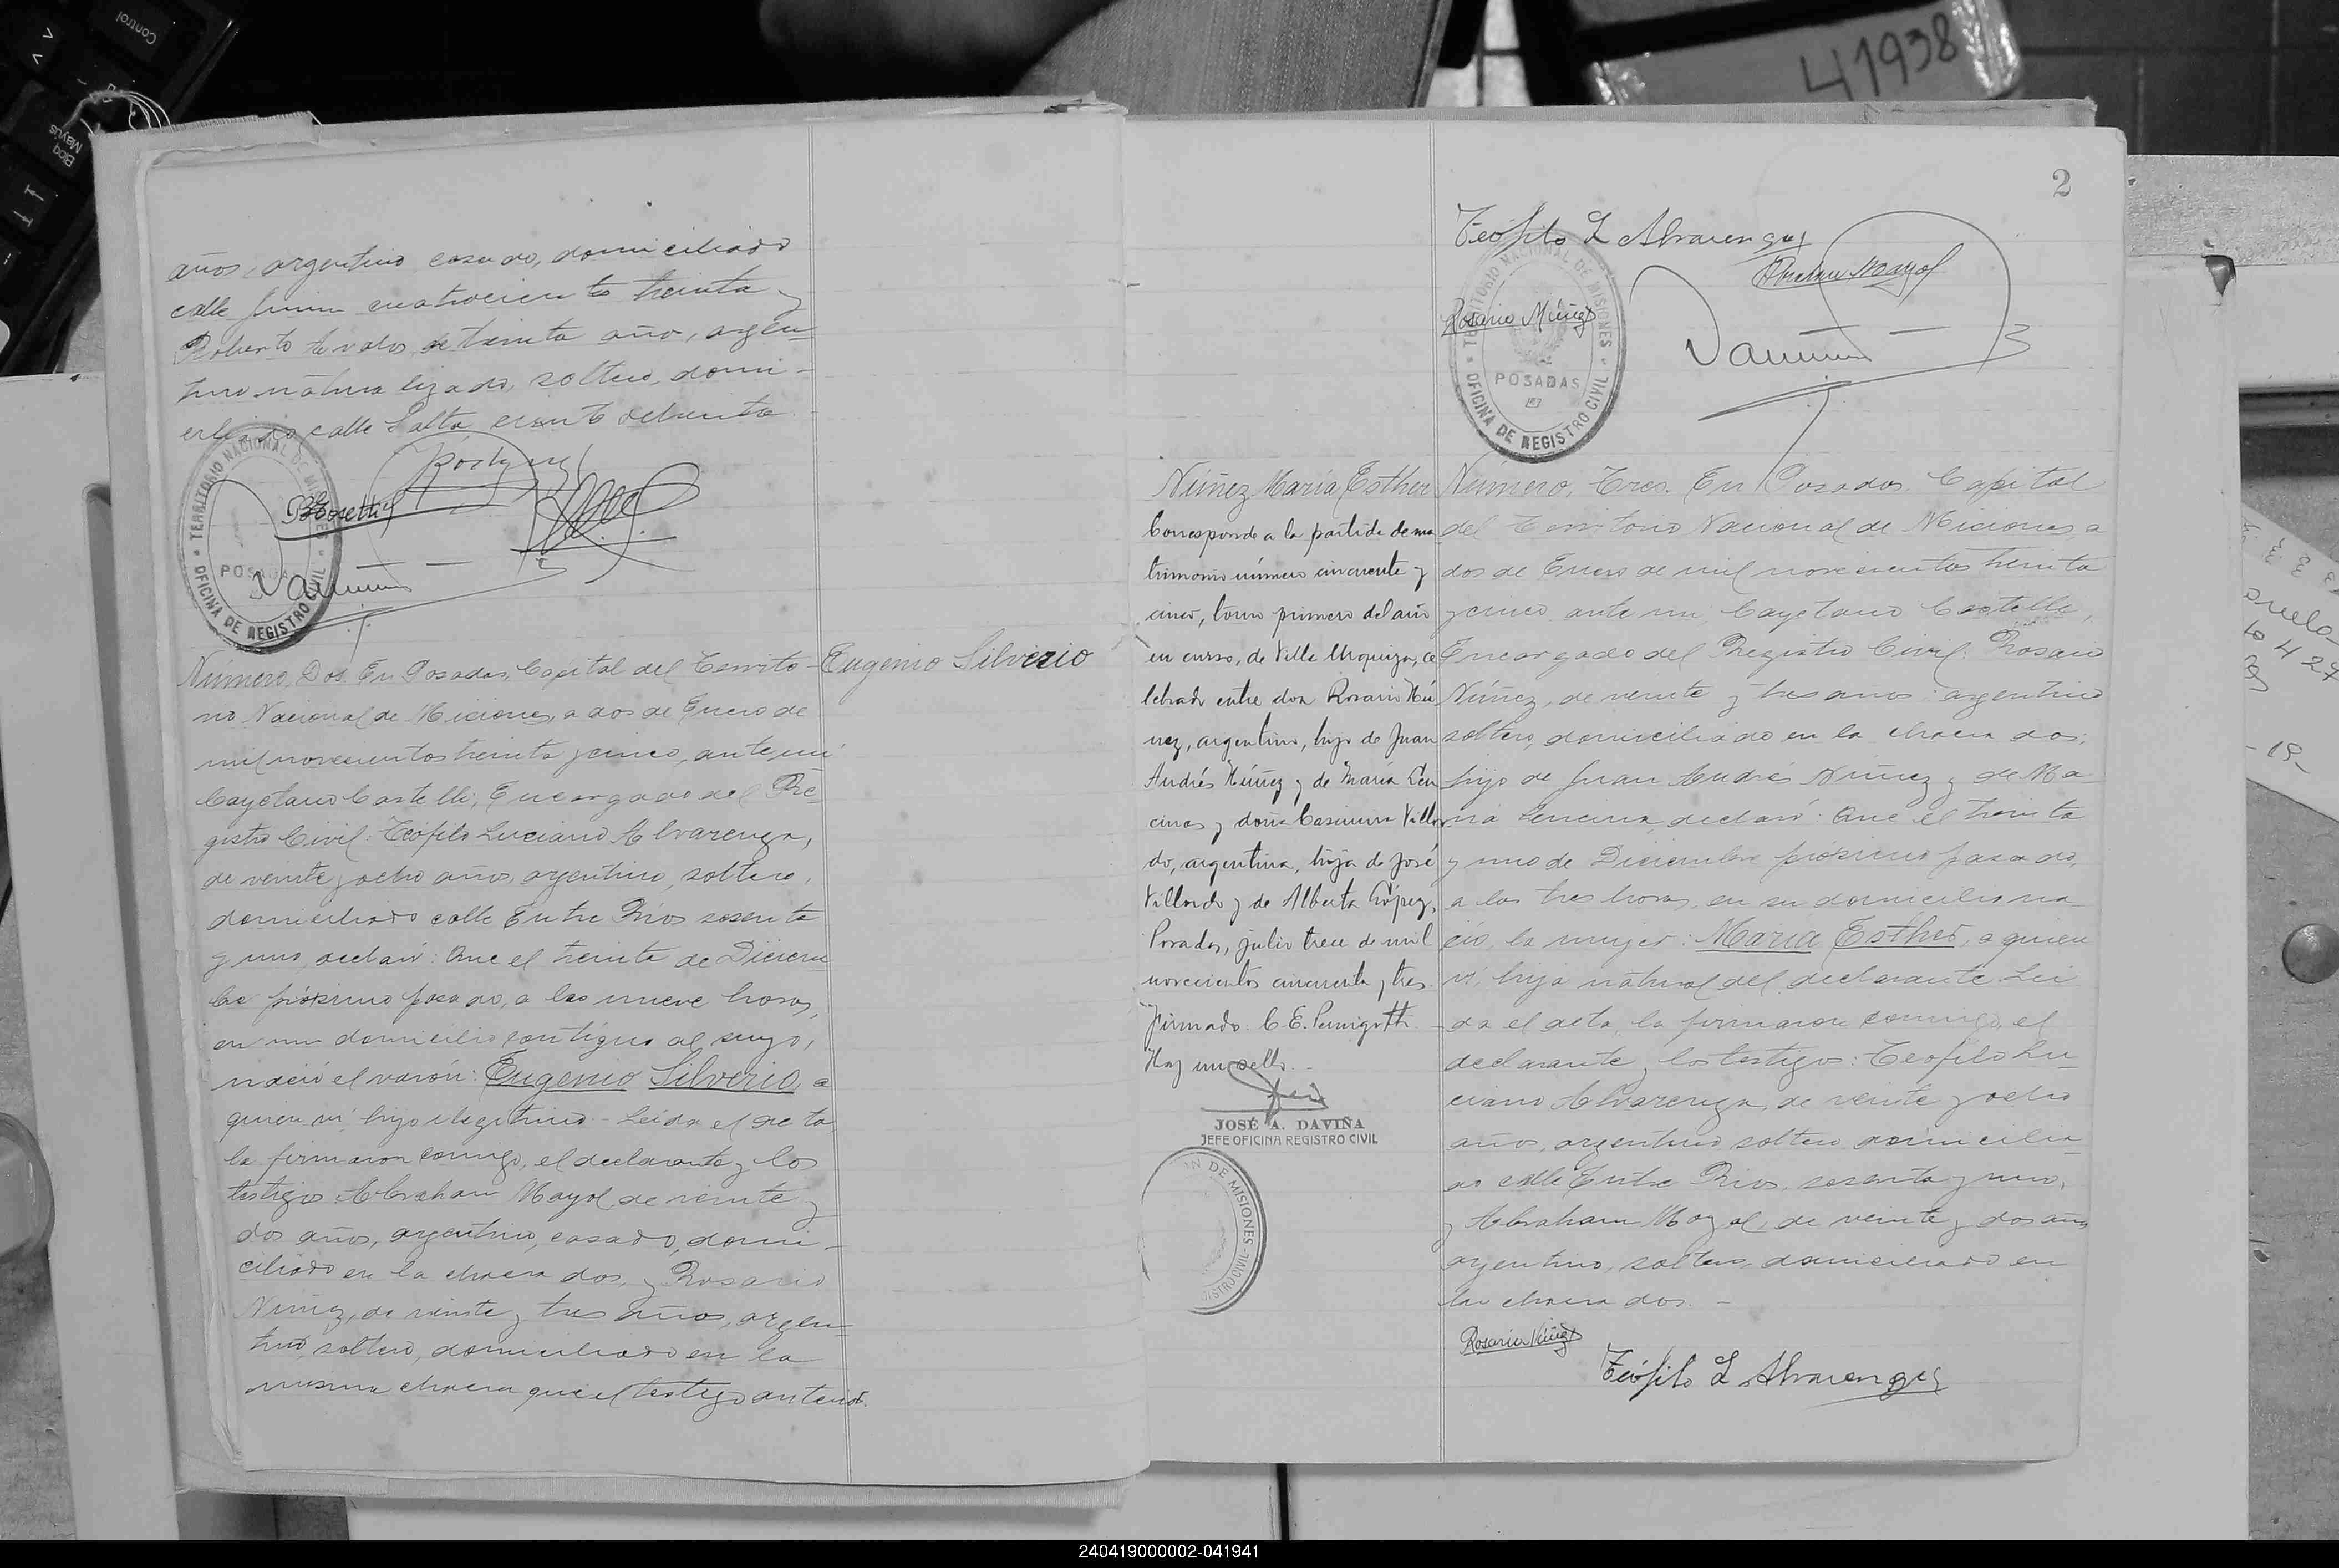 años, argentino casado, domiciliado
calle Junin cuatrociento treinta y
Roberto de treinta año, argen-
tino naturalizado, soltero, domi-
calle Salta ciento ochenta
TERRITORIO NACIONAL DE MISIONES
POSADAS
OFICINA DE REGISTRO CIVIL
Número, Dos. En Posadas, Capital del Territo-
rio Nacional de Misiones, a dos de Enero de
mil novecientos treinta y cinco, ante mí
Cayetano Castelli, Encargado del Re-
gistro Civil: Teófilo Luciano Alvarenga,
de veinte y ocho años, argentino, soltero,
domiciliado calle Entre Rios sesenta
y uno, declaró: Que el treinta de Diciem-
bre próximo pasado, a las nueve horas,
en un domicilio contiguo al suyo,
nació el varón: Eugenio Silverio, a
quien ví, hijo ilegítimo - Leida el acta
la firmaron conmigo, el declarante y los
testigos Abraham Mayol de veinte y
dos años, argentino, casado, domi-
ciliado en la chacra dos, y Rosario
Núñez, de veinte y tres años, argen-
tino, soltero, domiciliado en la
misma chacra que el testigo anterior.
Eugenio Silverio
2
Teófilo L Alvarenga
Abraham Mayol
Rosario Núñez
TERRITORIO NACIONAL DE MISIONES
POSADAS
OFICINA DE REGISTRO CIVIL
Núñez María Esther
Corresponde a la partida de ma-
trimonio número cincuenta y
cinco, tomo primero del año
en curso, de Villa Urquiza, ce-
lebrado entre don Rosario Nú-
ñez, argentino, hijo de Juan
Andrés Núñez y de María Len-
cinas y doña Casimira Villor-
do, argentina, hija de José
Villordo y de Alberta López,
Posadas, julio trece de mil
novecientos cincuenta y tres.
Firmado: C. E.
Hay un sello.-
JOSÉ A. DAVIÑA
JEFE OFICINA REGISTRO CIVIL
N DE MISIONES
ISTRO CIVIL
Número, Tres. En Posadas Capital
del Territorio Nacional de Misiones, a
dos de Enero de mil novecientos treinta
y cinco ante mi Cayetano Castelli,
Encargado del Registro Civil: Rosario
Núñez, de veinte y tres años argentino
soltero, domiciliado en la chacra dos;
hijo de Juan Andrés Núñez y de Ma-
ria Lencina, declaró: Que el treinta
y uno de Diciembre próximo pasado,
a las tres horas, en su domicilio na-
ció, la mujer: María Esther, a quien
ví, hija natural del declarante. Lei-
da el acta, la firmaron conmigo, el
declarante y los testigos: Teofilo Lu-
ciano Alvarenga, de veinte y ocho
años, argentino soltero domicilia-
do calle Entre Rios, sesenta y uno,
y Abraham Mayol, de veinte y dos años
argentino, soltero, domiciliado en
la chacra dos. -
Rosario Núñez
Teófilo L Alvarenga
41938
Control
Bloq
Mayús
240419000002-041941